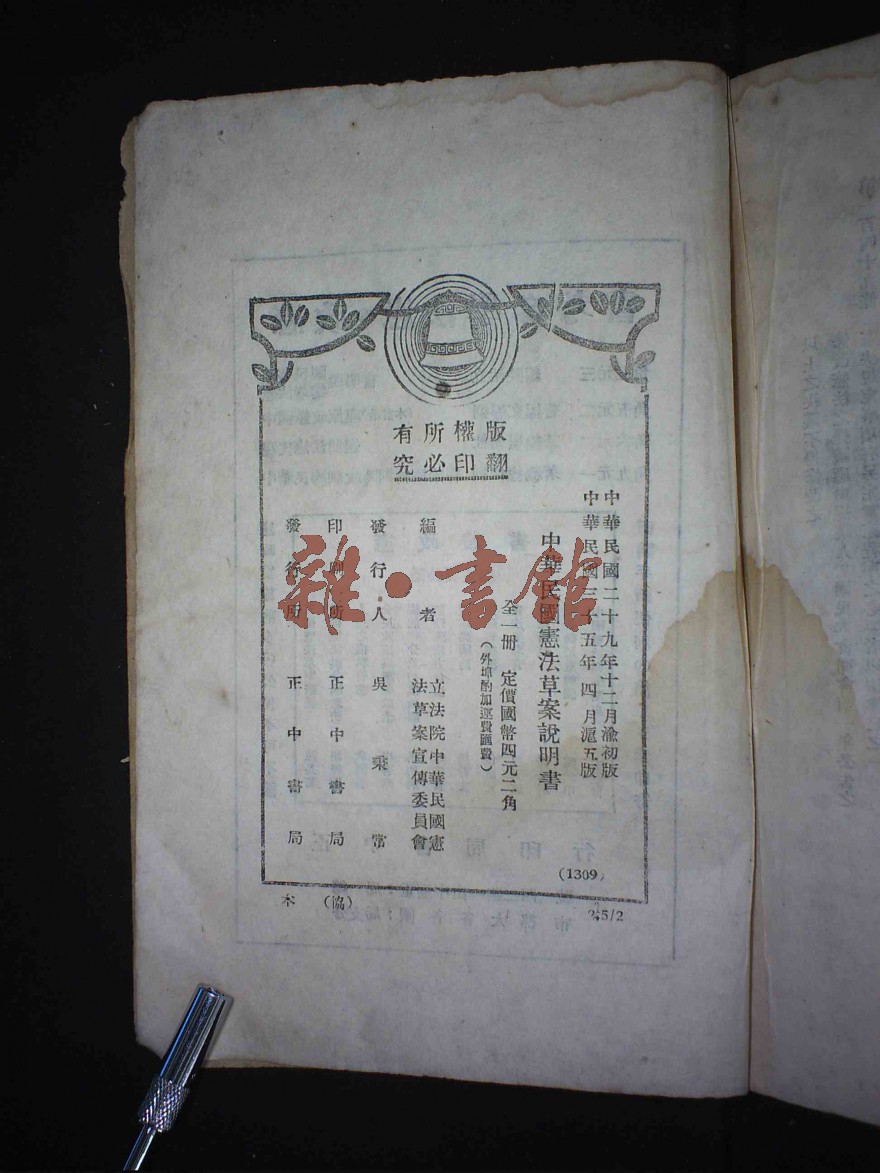 版權所有
翻印必究
中華民國二十九年十二月渝初版
中華民國三十五年四月滬五版
中華民國憲法草案說明書
全一冊 定價國幣四元二角
（外埠酌加運費匯費）
編者 立法院中華民國憲法草案宣傳委員會
發行人 吳秉常
印刷所 正中書局
發行所 正中書局
(1309)
本
(協)
2.5/2
雜·書館